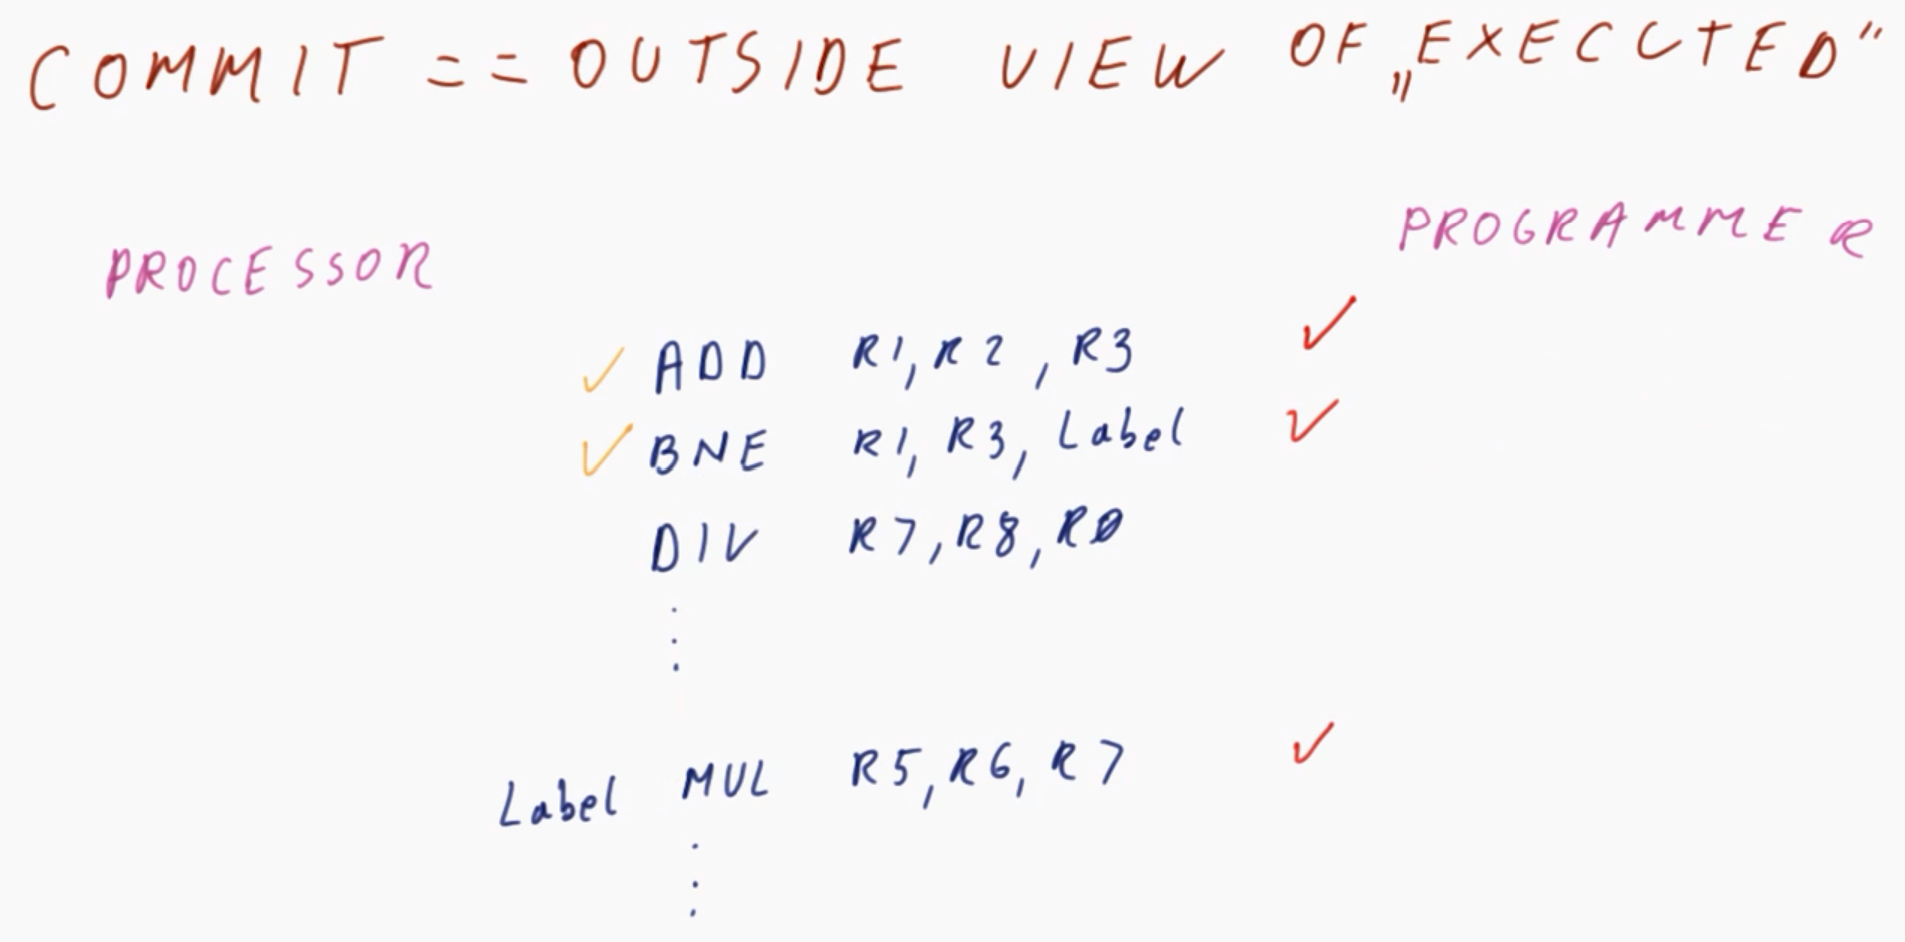 COMMIT == OUTSIDE VIEW OF „EXECUTED"
PROCESSOR PROGRAMMER
✓ ADD R1, R2, R3 ✓
✓ BNE R1, R3, Label ✓
DIV R7, R8, R0
⋮
Label MUL R5, R6, R7 ✓
⋮